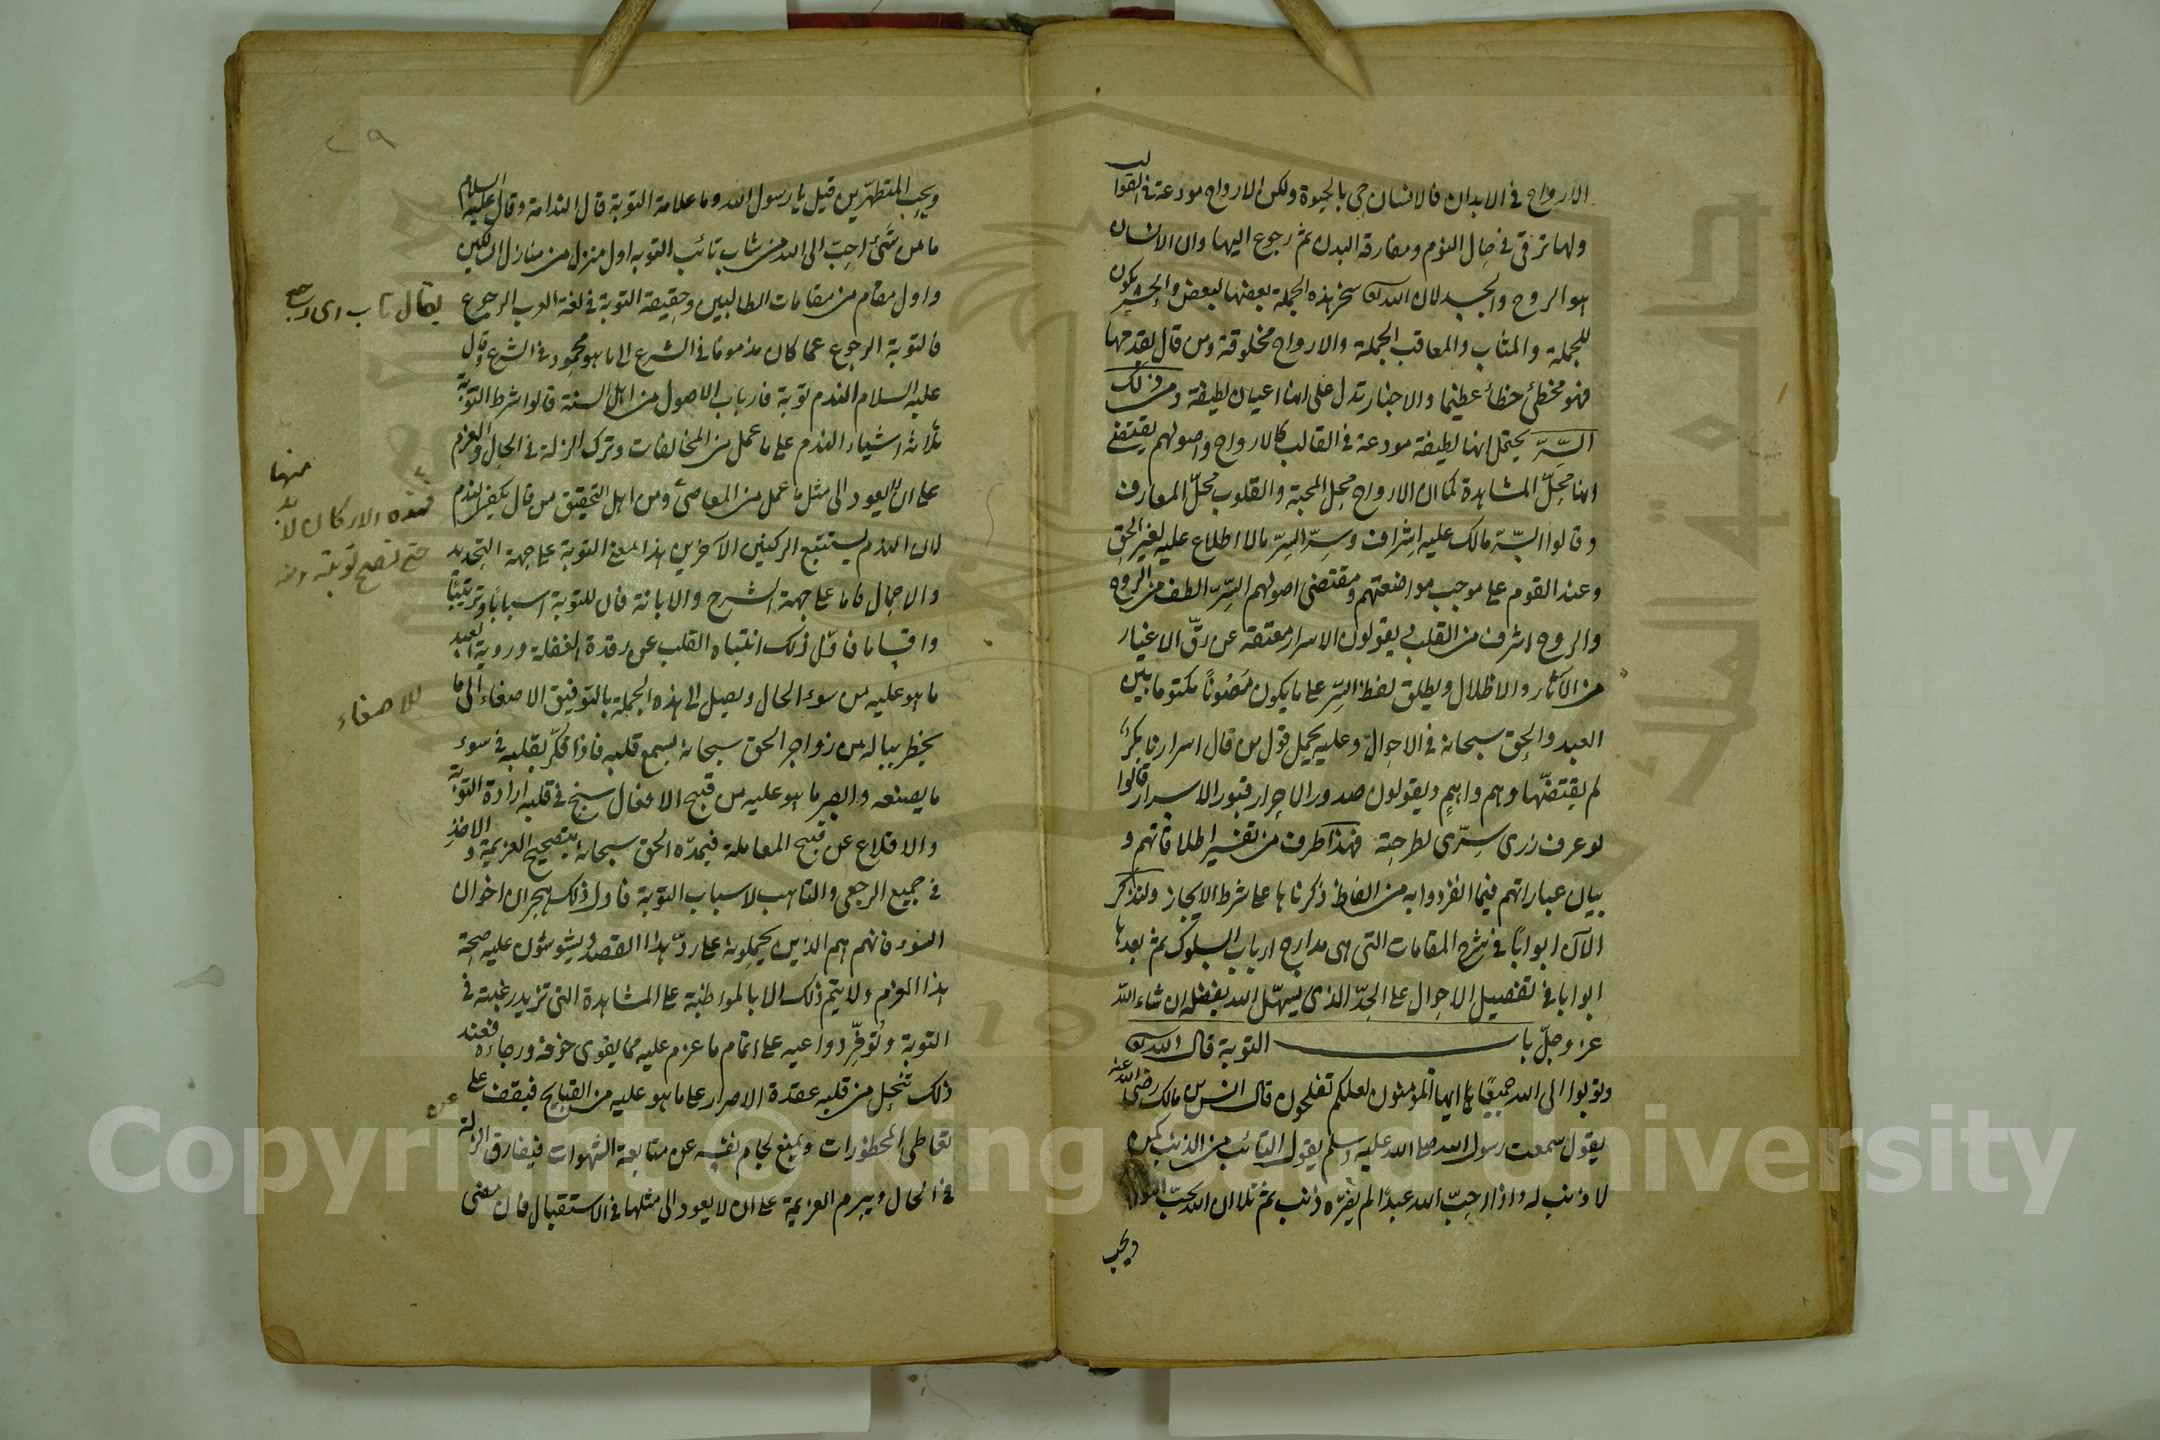 الارواح فى الابدان فالانسان حى بالحيوة ولكن الارواح مودعة فى القوالب
ولها ترقى فى حال النوم ومفارقة البدن ثم رجوع اليها وان الانسان
هو الروح والجسد لان الله سخر هذه الجملة بعضها لبعض والحشر يكون
للجملة والمثاب والمعاقب الجملة والارواح مخلوقة ومن قال بقدمها
فهو مخطئ خطأ عظيما والاخبار تدل على انها اعيان لطيفة ومن ذلك
السِّرّ يحتمل انها لطيفة مودعة فى القالب كالارواح واصولهم يقتضى
انها محلّ المشاهدة كما ان الارواح محل المحبة والقلوب محلّ المعارف
وقالوا السّر مالك عليه اشراف وسِرّ السِرّ مالا اطلاع عليه لغير الحق
وعند القوم على موجب مواضعتهم ومقتضى اصولهم السّرّ الطف من الروح
والروح اشرف من القلب ويقولون الاسرار معتقة عن رقّ الاغيار
من الآثار والاطلال ويطلق لفظ السِّر على ما يكون مَصُونًا مكتوما بين
العبد والحق سبحانه فى الاحوال وعليه يحمل قول من قال اسرارنا بكر
لم يفتضّها وهم واهم ويقولون صدور الاحرار قبور الاسرار قالوا
لو عرف زرى سِرّى لطرحته فهذا طرف من تفسير اطلاقاتهم و
بيان عباراتهم فيما انفردوا به من الفاظ ذكرناها على شرط الايجاز ولنذكر
الآن ابوابًا فى شرح المقامات التى هى مدارج ارباب السلوك ثم بعدها
ابوابا فى تفصيل الاحوال على الحدّ الذى يسهّل الله بفضله ان شاء الله
عز وجلّ باب التوبة قال الله
وتوبوا الى الله جميعًا ايها المؤمنون لعلكم تفلحون قال انس بن مالك رضى الله عنه
يقول سمعت رسول الله صلى الله عليه وسلم يقول التائب من الذنب كمن
لا ذنب له واذا احبّ الله عبدًا لم يضرّه ذنب ثم تلا ان الله يحبّ التوابين
ويحب
٢٩
ويحب المتطهّرين قيل يا رسول الله وما علامة التوبة قال الندامة وقال عليه السلام
ما من شئ احبّ الى الله من شاب تائب التوبة اول منزل من منازل السالكين
واول مقام من مقامات الطالبين وحقيقة التوبة فى لغة العرب الرجوع
يقال تاب اى رجع
فالتوبة الرجوع عما كان مذموما فى الشرع الى ما هو محمود فى الشرع وقال
عليه السلام الندم توبة فارباب الاصول من اهل السنة قالوا شرط التوبة
ثلاثة اشياء الندم على ما عمل من المخالفات وترك الزلة فى الحال والعزم
على ان لا يعود الى مثل ما عمل من المعاصى ومن اهل التحقيق من قال يكفى الندم
منها
فهذه الاركان لا بد
حتى تصح توبته
لان الندم يستتبع الركنين الآخرين هذا معنى التوبة على جهة التحديد
والاجمال فاما على جهة الشرح والابانة فان للتوبة اسبابًا وترتيبًا
واقساما فاوّل ذلك انتباه القلب عن رقدة الغفلة وروية العبد
ما هو عليه من سوء الحال ويصل الى هذه الجملة بالتوفيق الاصغاء الى ما
للاصغاء
يخطر بباله من زواجر الحق سبحانه بسمع قلبه فاذا فكّر بقلبه فى سوء
ما يصنعه وابصر ما هو عليه من قبيح الافعال سنح فى قلبه ارادة التوبة
والاقلاع عن قبيح المعاملة فيمدّه الحق سبحانه بتصحيح العزيمة والاخذ
فى جميع الرجعى والتاهب لاسباب التوبة فاول ذلك هجران اخوان
السوء فانهم هم الذين يحملونه على ردّ هذا القصد ويشوشون عليه صحة
هذا العزم ولا يتم ذلك الا بالمواظبة على المشاهدة التى تزيد رغبته فى
التوبة وتُوفِّر دواعيه على اتمام ما عزم عليه مما يقوى خوفه ورجاءه فعند
ذلك تنحل من قلبه عقدة الاصرار على ما هو عليه من القبايح فيقف على
عن
تعاطى المحظورات ويمنع لجام نفسه عن متابعة الشهوات فيفارق الزلة
فى الحال ويبرم العزيمة على ان لا يعود الى مثلها فى الاستقبال فان مضى
Copyright © King Saud University
جامعة الملك سعود